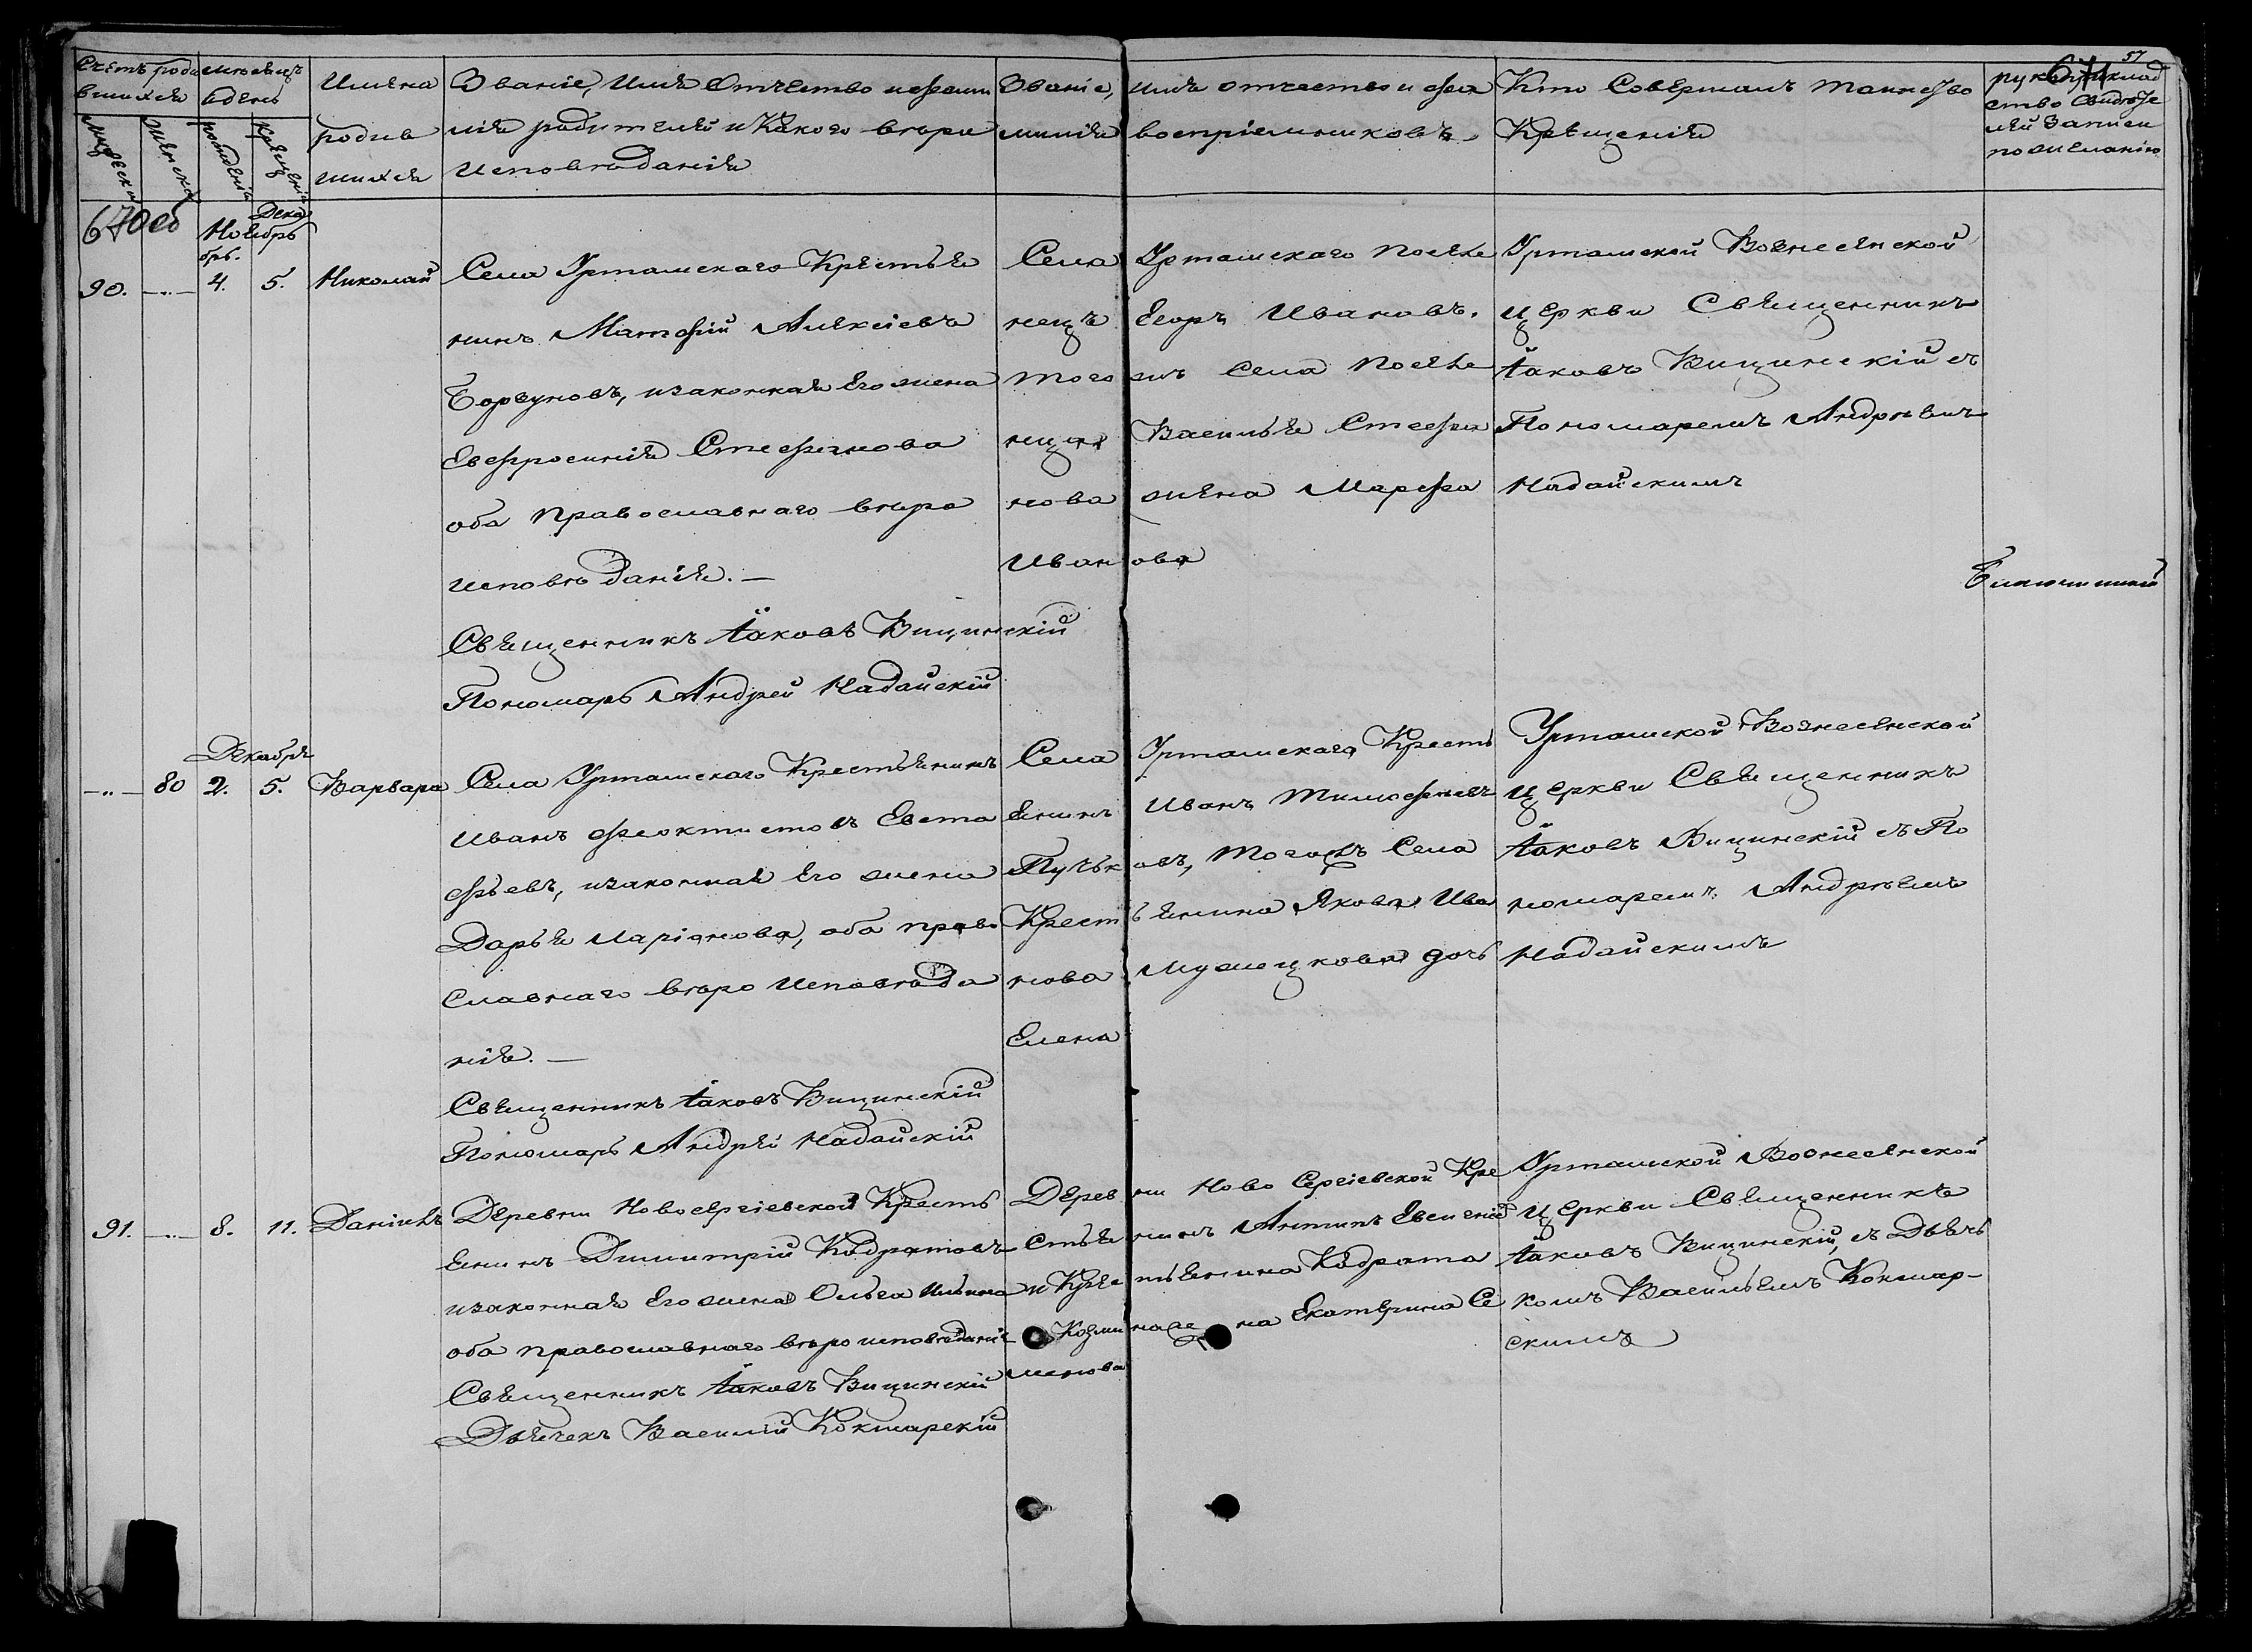 57
671
Счетъ роди
вшихся
мѣсяцъ
и день
Имена
родив
шихся
Званіе, Имя Отчество и фами
лія родителей и какого вѣро
исповѣданія
Званіе, имя отчество и фа
милія воспріемниковъ
Кто Совершалъ таинство
Крещенія
рукоприклад
ство Свидѣте
лей Записи
по желанію
мужеска
женска
рожденія
крещенія
670 об
Ноя
брь.
Декабрь
90. —„— 4. 5. Николай
Села Урташскаго Крестья
нинъ Матфій Алексіевъ
Борзуновъ, изаконная Его жена
Евфросинія Стефанова
оба православнаго вѣро
исповѣданія. —
Священникъ Іаковъ Вицинскій
Пономарь Андрей Надайскій
Села Урташскаго посѣле
нецъ Егоръ Ивановъ.
того жъ Села посѣле
нца Василья Стефа
нова жена Марфа
Иванова
Урташской Вознесенской
церкви Священникъ
Іаковъ Вицинскій съ
Пономаремъ Андреемъ
Надайскимъ
Декабря
—„— 80 2. 5. Варвара
Села Урташскаго Крестьянинъ
Иванъ Феоктистовъ Евста
фьевъ, изаконная Его жена
Дарья Иаріонова, оба право
славнаго вѣро Исповѣда
нія. —
Священникъ Іаковъ Вицинскій
Пономарь Андрей Надайскій
Села Урташскаго Кресть
янинъ Иванъ Тимофѣевъ
Пучьковъ, Тогожъ Села
Крестьянина Якова Ива
нова дочь
Елена
Урташской Вознесенской
церкви Священникъ
Іаковъ Вицинскій съ По
номаремъ Андреемъ
Надайскимъ
91. —„— 8. 11. Даніилъ
Деревни Новосергіевской Кресть
янинъ Димитрій Кодратовъ
изаконная Его жена Ольга Ильина
оба православнаго вѣро исповѣданія
Священникъ Іаковъ Вицинскій
Дьячекъ Василій Кокшарскій
Деревни Ново Сергіевской Кре
стьянинъ Антипъ Евсигній
и Крестьянина Кодрата
Козмина жена Екатерина Се
менова
Урташской Вознесенской
церкви Священникъ
Іаковъ Вицинскій, съ Дьяч
комъ Васильемъ Кокшар-
скимъ